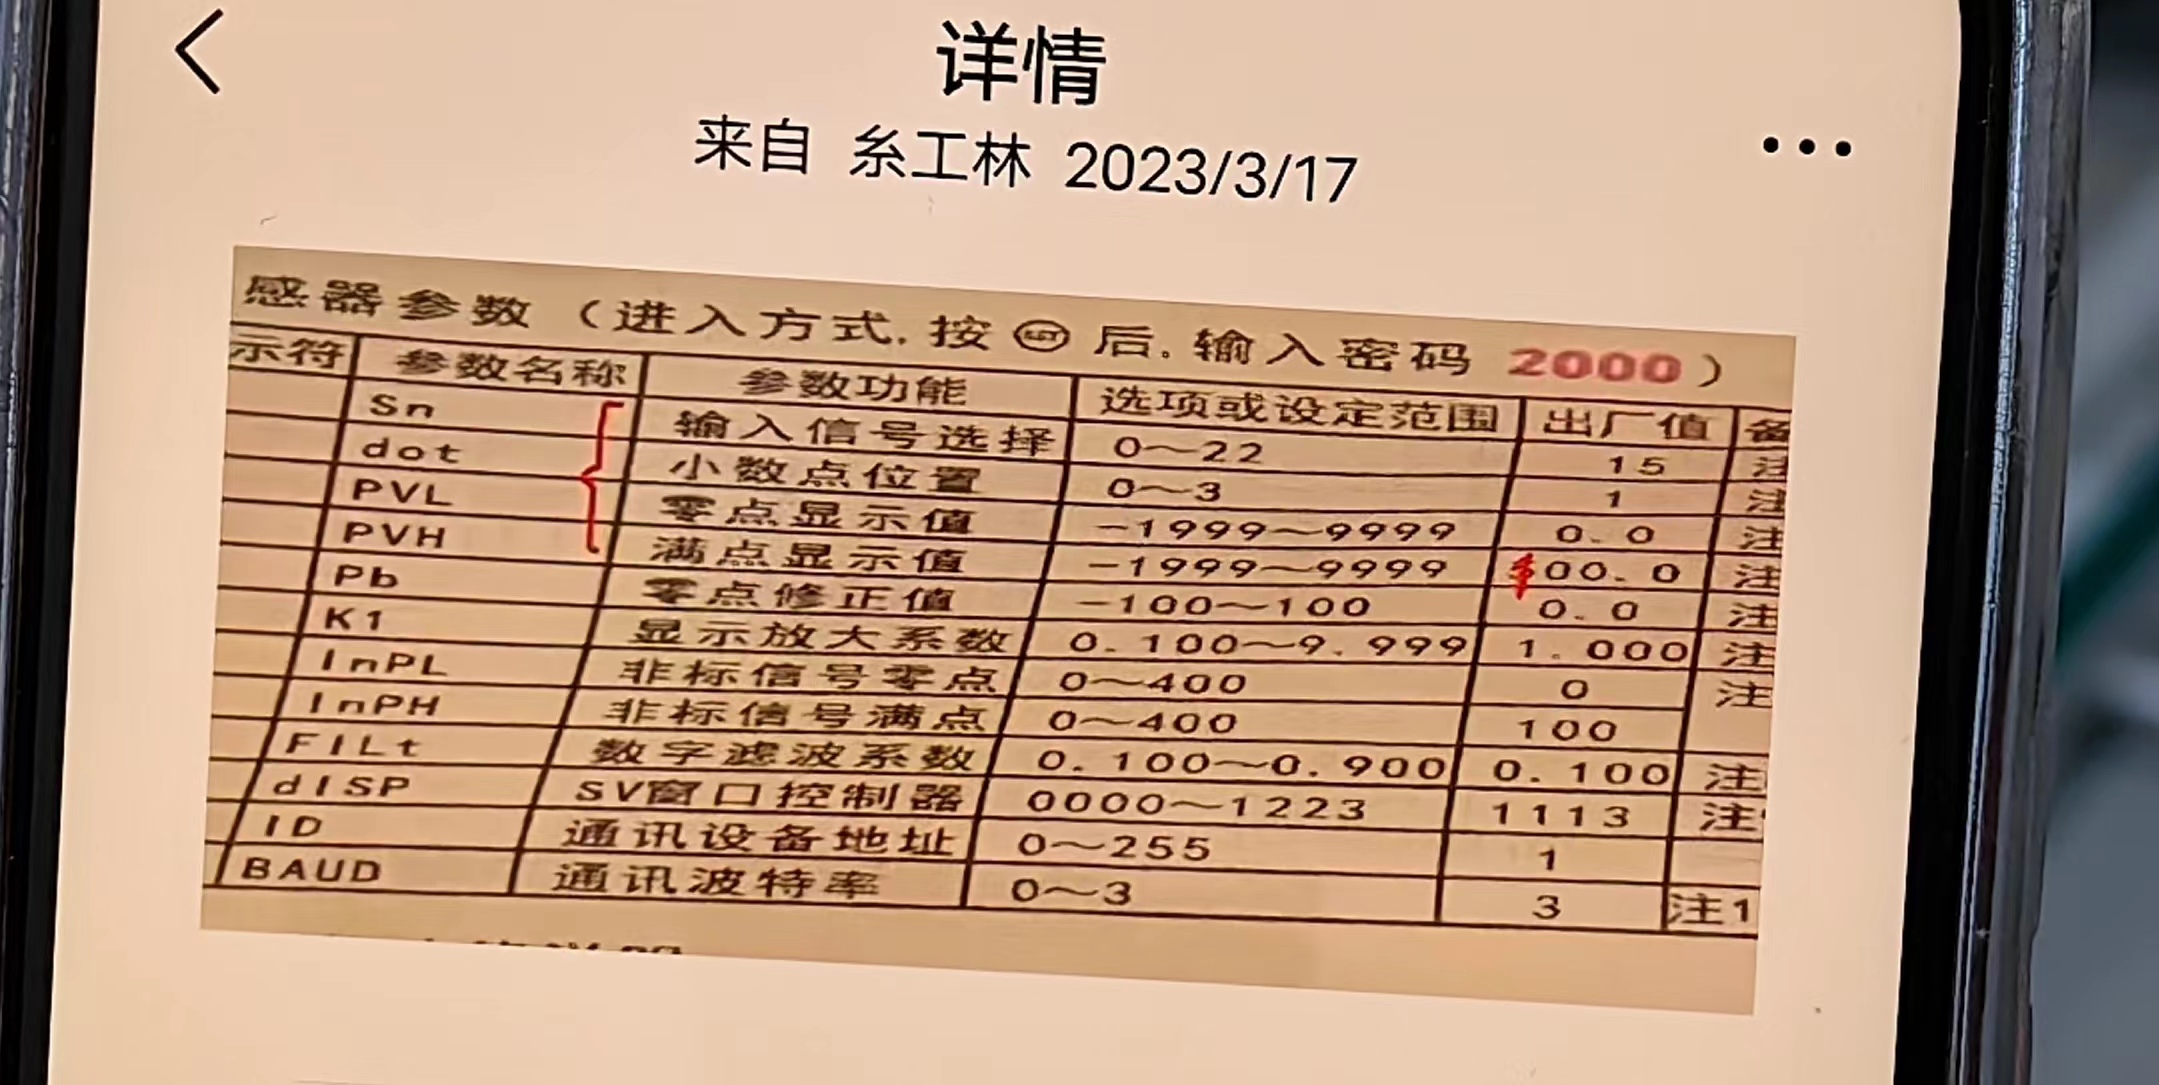 详情
来自 糸工林 2023/3/17
感器参数（进入方式.按 SET 后.输入密码 2000）
示符 参数名称 参数功能 选项或设定范围 出厂值 备
Sn 输入信号选择 0～22 15 注
dot 小数点位置 0～3 1 注
PVL 零点显示值 -1999～9999 0.0 注
PVH 满点显示值 -1999～9999 00.0 注
Pb 零点修正值 -100～100 0.0 注
K1 显示放大系数 0.100～9.999 1.000 注
InPL 非标信号零点 0～400 0 注
InPH 非标信号满点 0～400 100
FILt 数字滤波系数 0.100～0.900 0.100 注
dISP SV窗口控制器 0000～1223 1113 注
ID 通讯设备地址 0～255 1
BAUD 通讯波特率 0～3 3 注1